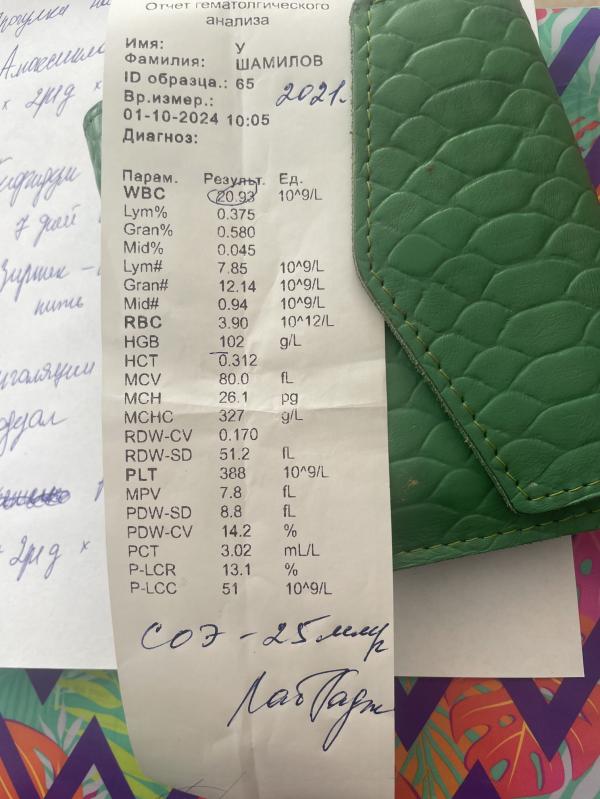 Отчет гематологического
анализа
Имя: У
Фамилия: ШАМИЛОВ
ID образца.: 65
Вр.измер.: 2021г.
01-10-2024 10:05
Диагноз:
Парам. Результ. Ед.
WBC 20.93 10^9/L
Lym% 0.375
Gran% 0.580
Mid% 0.045
Lym# 7.85 10^9/L
Gran# 12.14 10^9/L
Mid# 0.94 10^9/L
RBC 3.90 10^12/L
HGB 102 g/L
HCT 0.312
MCV 80.0 fL
MCH 26.1 pg
MCHC 327 g/L
RDW-CV 0.170
RDW-SD 51.2 fL
PLT 388 10^9/L
MPV 7.8 fL
PDW-SD 8.8 fL
PDW-CV 14.2 %
PCT 3.02 mL/L
P-LCR 13.1 %
P-LCC 51 10^9/L
СОЭ - 25 мм/
× 2р/д ×
7 дней
пить
2р/д ×